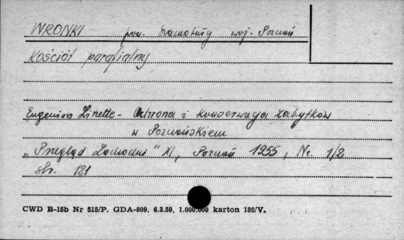 WRONKI pow. Szamotuły woj. Poznań
Kościół parafialny
Eugeniusz Linette - Ochrona i konserwacja zabytków
w Poznańskiem
„Przegląd Zachodni" XI, Poznań 1955, Nr. 1/2
Str. 181
CWD B-15b Nr 515/P. GDA-809. 6.3.59. 1.000.000 karton 180/V.